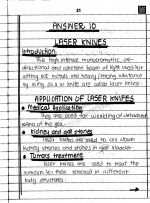 21
ANSWER 10
LASER KNIVES
Introduction:
The high intense monochromatic, uni-
directional and coherent beam of light used for
cutting out metals and heavy / strong substance
by using as a knife are called laser knives.
APPLICATION OF LASER KNIFES
• Medical Application:
They are used for welding of detached
retina of the eye.
• Kidney and gall stones
Laser knives are used to cut down
kidney stones and stones in gall bladder.
• Tumors treatment:
Laser knives are used to treat the
tumors for their removal in different
body structures.